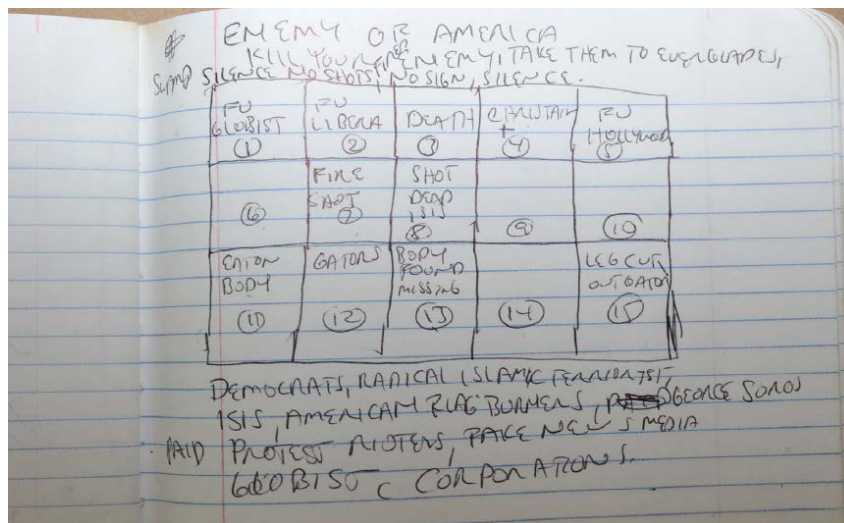 ENEMY OR AMERICA
KILL YOUR ENEMY, TAKE THEM TO EVERGLADES,
SWAMP SILENCE NO SHOTS, NO SIGN, SILENCE.
FU GLOBIST 1
FU LIBERA 2
DEATH 3
CHRISTAIN + 4
FU HOLLYWOOD 5
6
FIRE SHOT 7
SHOT DEAD ISIS 8
9
10
EATON BODY 11
GATORS 12
BODY FOUND MISSING 13
14
LEG CUT OUT GATOR 15
DEMOCRATS, RADICAL ISLAMIC TERRIORTST,
ISIS, AMERICAN FLAG BURNERS, GEORGE SOROS
PAID PROTEST RIOTERS, FAKE NEWS MEDIA
GLOBIST CORPORATIONS.